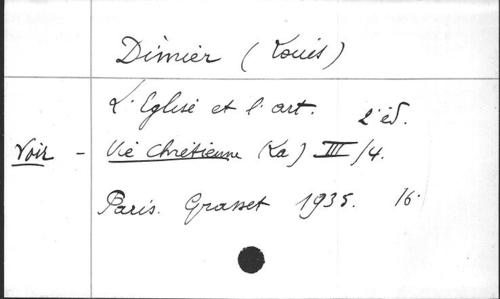 Dimier (Louis)
L'Eglise et l'art. 2'éd.
Voir - Vie chrétienne (La) III/4.
Paris. Grasset 1935. 16°